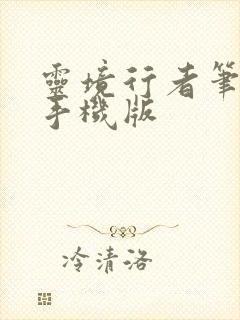 靈境行者筆
手機版
冷清洛